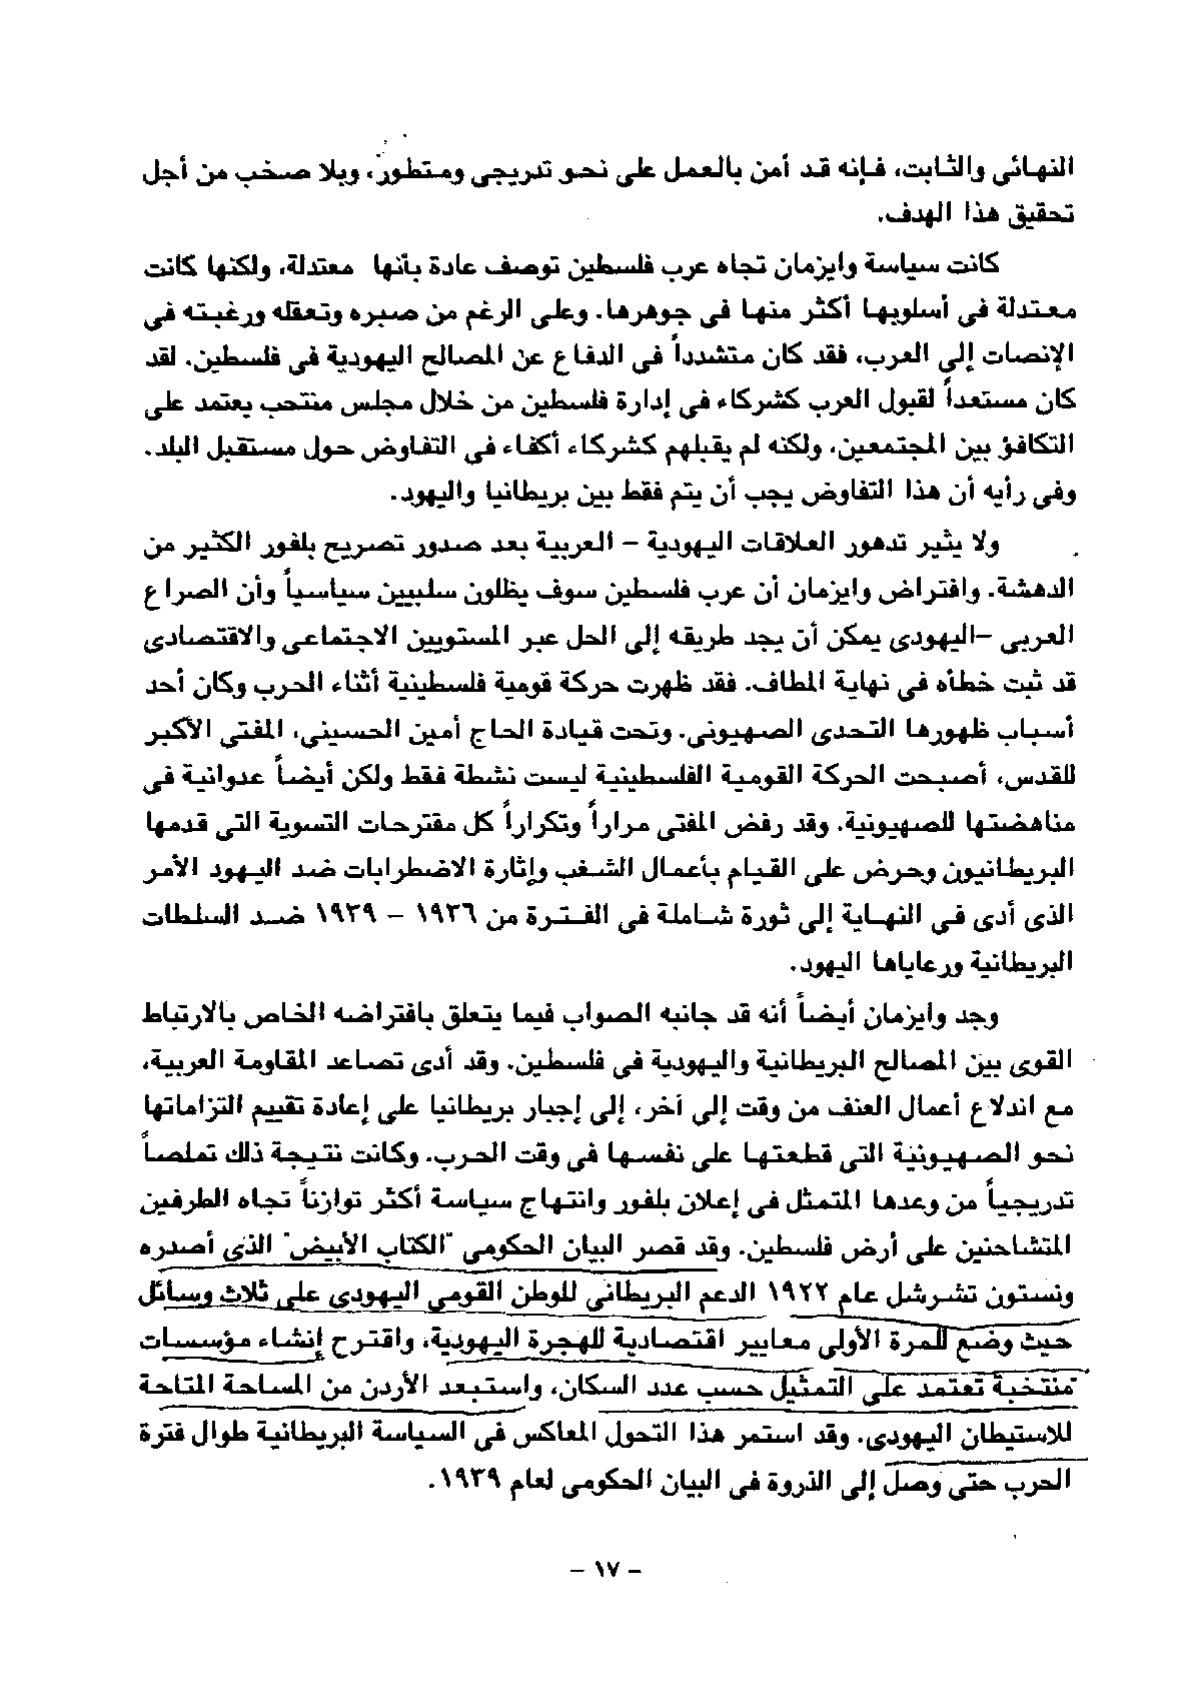 النهائي والثابت، فإنه قد أمن بالعمل على نحو تدريجي ومتطور، وبلا صخب من أجل
تحقيق هذا الهدف.
كانت سياسة وايزمان تجاه عرب فلسطين توصف عادة بأنها معتدلة، ولكنها كانت
معتدلة في أسلوبها أكثر منها في جوهرها. وعلى الرغم من صبره وتعقله ورغبته في
الإنصات إلى العرب، فقد كان متشدداً في الدفاع عن المصالح اليهودية في فلسطين. لقد
كان مستعداً لقبول العرب كشركاء في إدارة فلسطين من خلال مجلس منتحب يعتمد على
التكافؤ بين المجتمعين، ولكنه لم يقبلهم كشركاء أكفاء في التفاوض حول مستقبل البلد.
وفي رأيه أن هذا التفاوض يجب أن يتم فقط بين بريطانيا واليهود.
ولا يثير تدهور العلاقات اليهودية – العربية بعد صدور تصريح بلفور الكثير من
الدهشة. وافتراض وايزمان أن عرب فلسطين سوف يظلون سلبيين سياسياً وأن الصراع
العربي –اليهودى يمكن أن يجد طريقه إلى الحل عبر المستويين الاجتماعى والاقتصادى
قد ثبت خطأه في نهاية المطاف. فقد ظهرت حركة قومية فلسطينية أثناء الحرب وكان أحد
أسباب ظهورها التحدى الصهيوني. وتحت قيادة الحاج أمين الحسيني، المفتي الأكبر
للقدس، أصبحت الحركة القومية الفلسطينية ليست نشطة فقط ولكن أيضاً عدوانية في
مناهضتها للصهيونية. وقد رفض المفتي مراراً وتكراراً كل مقترحات التسوية التي قدمها
البريطانيون وحرض على القيام بأعمال الشغب وإثارة الاضطرابات ضد اليهود الأمر
الذى أدى في النهاية إلى ثورة شاملة في الفترة من ١٩٣٦ – ١٩٣٩ ضد السلطات
البريطانية ورعاياها اليهود.
وجد وايزمان أيضاً أنه قد جانبه الصواب فيما يتعلق بافتراضه الخاص بالارتباط
القوى بين المصالح البريطانية واليهودية في فلسطين. وقد أدى تصاعد المقاومة العربية،
مع اندلاع أعمال العنف من وقت إلى آخر، إلى إجبار بريطانيا على إعادة تقييم التزاماتها
نحو الصهيونية التي قطعتها على نفسها في وقت الحرب. وكانت نتيجة ذلك تملصاً
تدريجياً من وعدها المتمثل في إعلان بلفور وانتهاج سياسة أكثر توازناً تجاه الطرفين
المتشاحنين على أرض فلسطين. وقد قصر البيان الحكومى "الكتاب الأبيض" الذى أصدره
ونستون تشرشل عام ١٩٢٢ الدعم البريطاني للوطن القومي اليهودى على ثلاث وسائل
حيث وضع للمرة الأولى معايير اقتصادية للهجرة اليهودية، واقترح إنشاء مؤسسات
منتخبة تعتمد على التمثيل حسب عدد السكان، واستبعد الأردن من المساحة المتاحة
للاستيطان اليهودى. وقد استمر هذا التحول المعاكس في السياسة البريطانية طوال فترة
الحرب حتى وصل إلى الذروة في البيان الحكومى لعام ١٩٣٩.
– ١٧ –